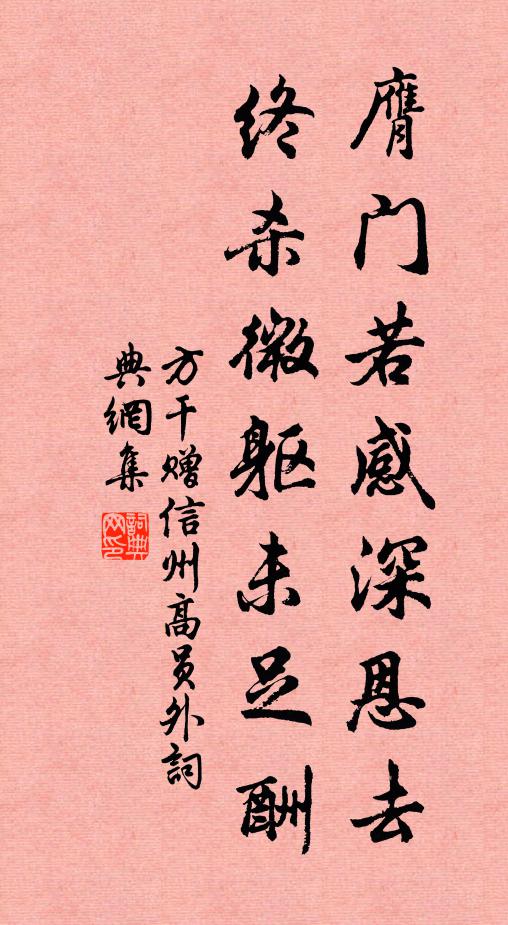 膺门若感深恩去
终杀微躯未足酬
方干赠信州高员外词
典網集
詞典網印